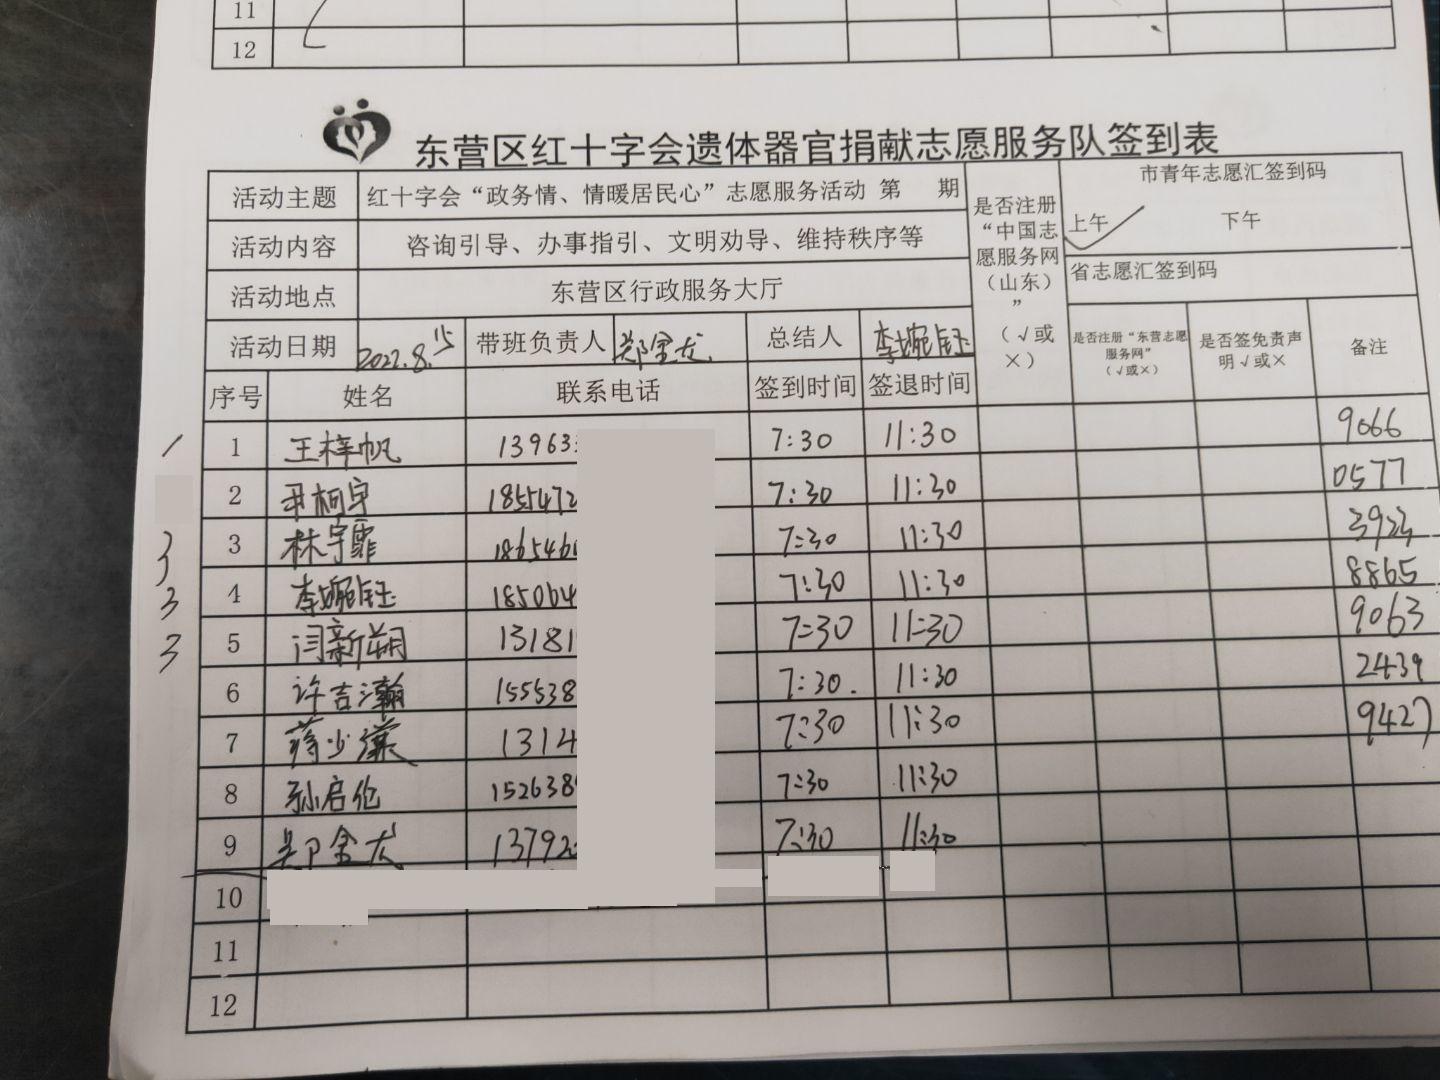 11
12
东营区红十字会遗体器官捐献志愿服务队签到表
活动主题 红十字会“政务情、情暖居民心”志愿服务活动 第 期 是否注册“中国志愿服务网（山东）”（√或×） 市青年志愿汇签到码
上午 √ 下午
活动内容 咨询引导、办事指引、文明劝导、维持秩序等
省志愿汇签到码
活动地点 东营区行政服务大厅
活动日期 2022.8.15 带班负责人 郑金龙 总结人 李婉钰 是否注册“东营志愿服务网”（√或×） 是否签免责声明√或× 备注
序号 姓名 联系电话 签到时间 签退时间
1 王梓帆 13963 7:30 11:30 9066
2 尹柯宇 1855472 7:30 11:30 0577
3 3 林宇霏 186546 7:30 11:30 3923
3 4 李婉钰 185064 7:30 11:30 8865
3 5 闫新朔 13181 7:30 11:30 9063
6 许吉瀚 155538 7:30. 11:30 2439
7 蒋少 1314 7:30 11:30 9427
8 孙启伦 152638 7:30 11:30
9 郑金龙 13792 7:30 11:30
10
11
12